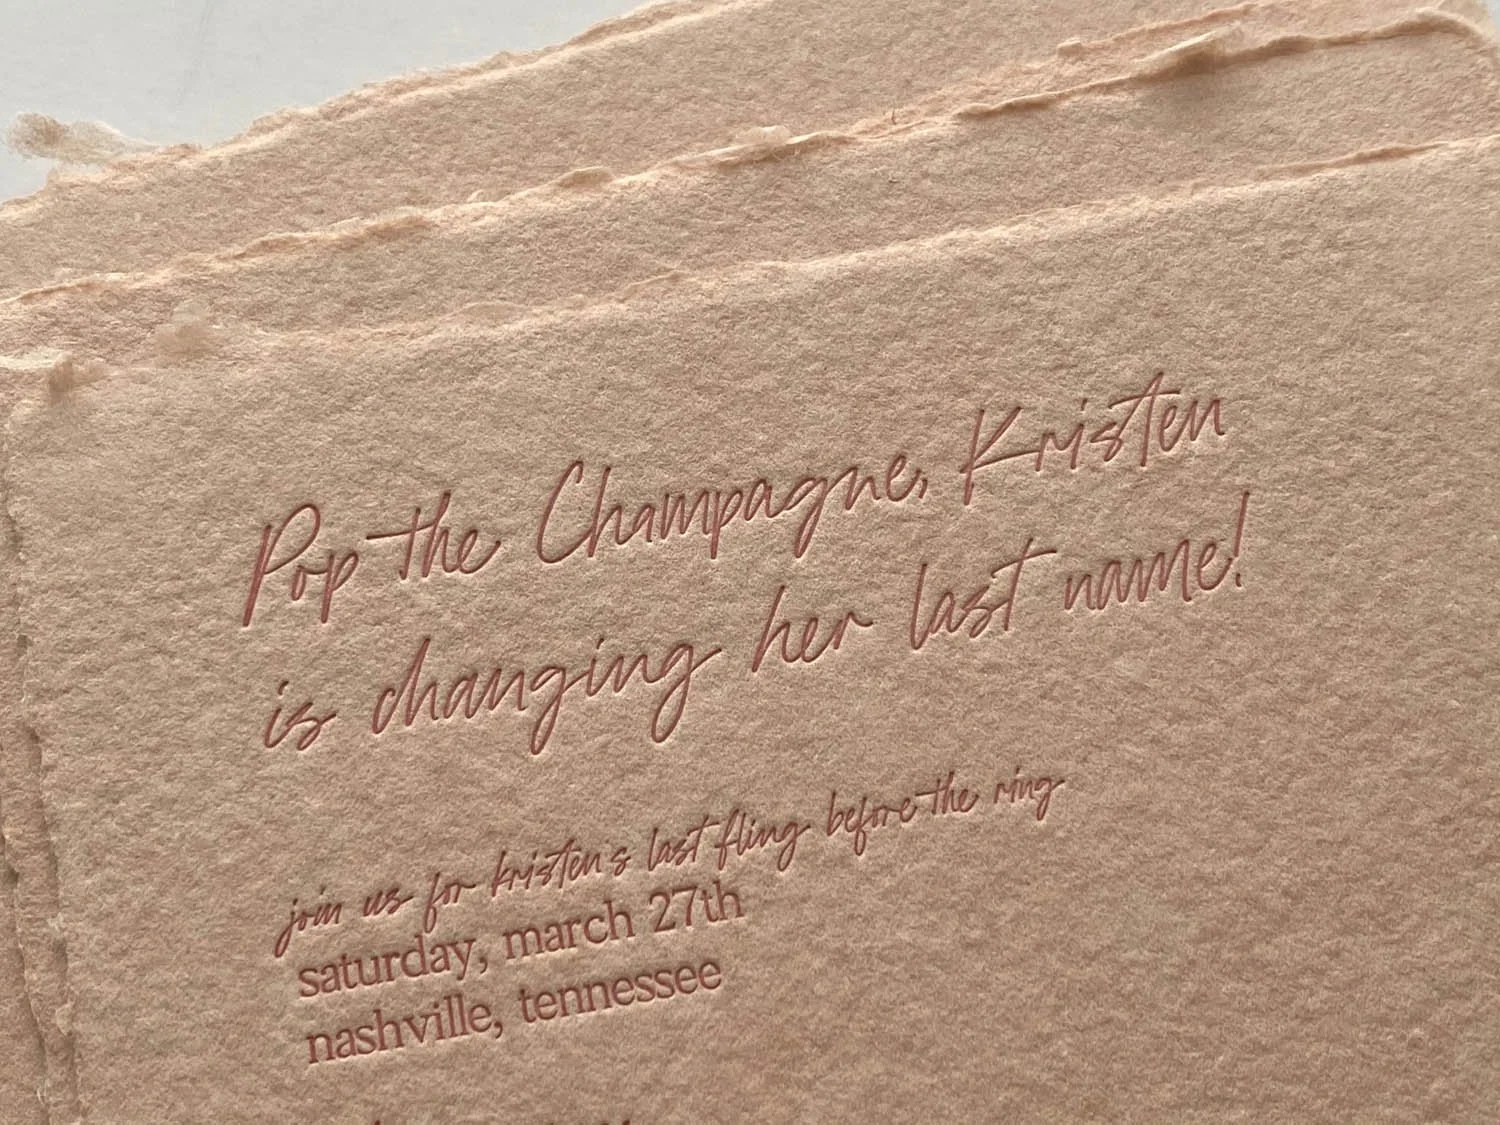 Pop the Champagne, Kristen
is changing her last name!
join us for kristen's last fling before the ring
saturday, march 27th
nashville, tennessee